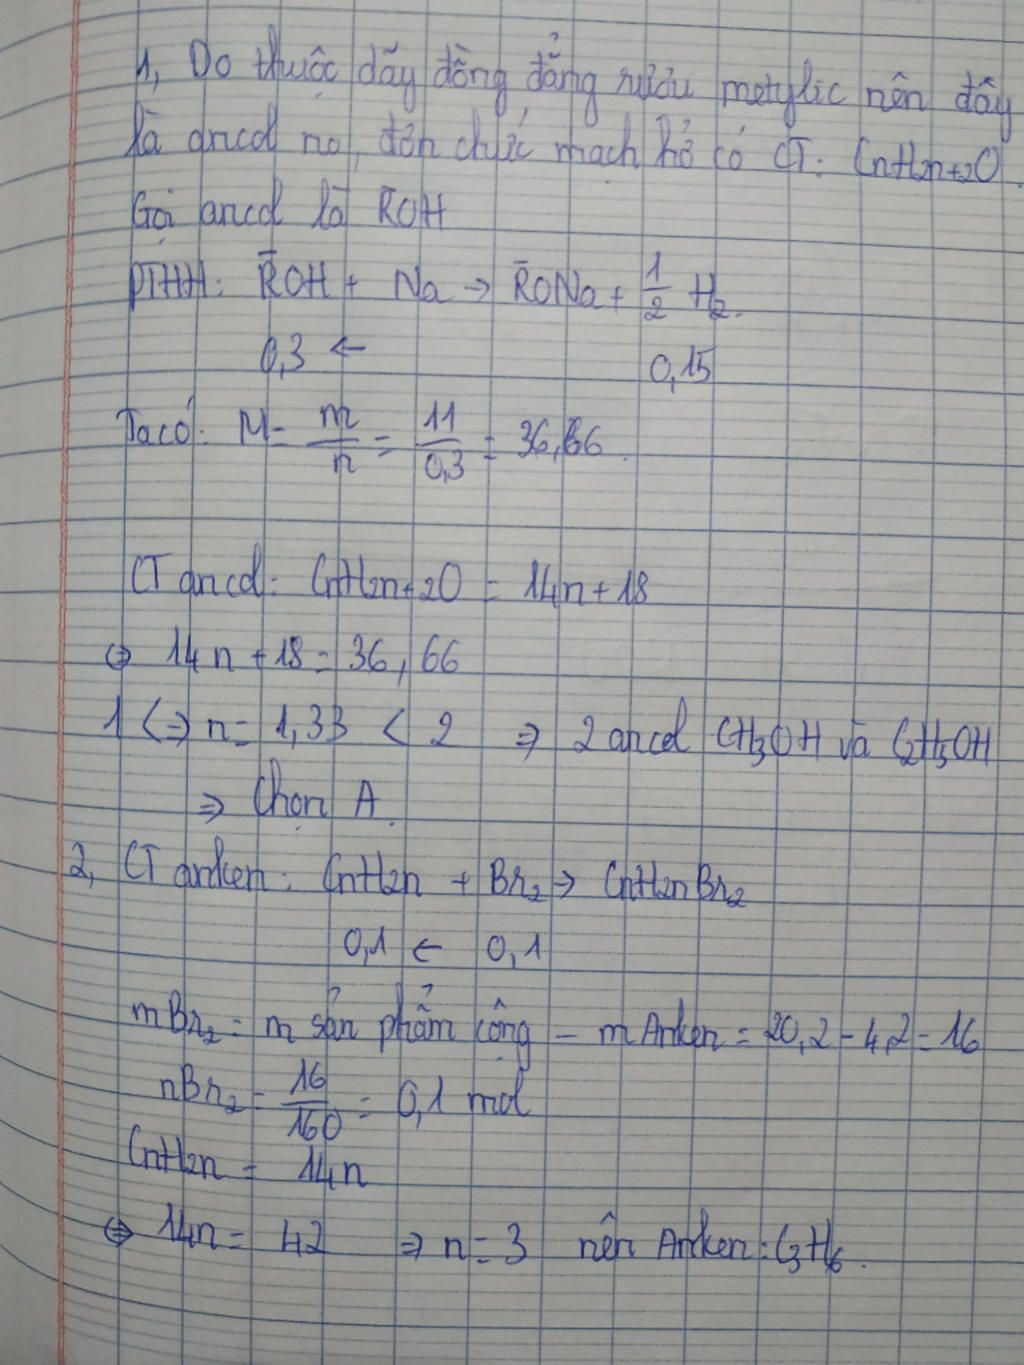 1, Do thuộc dãy đồng đẳng rượu metylic nên đây
là ancol no, đơn chức mạch hở có CT: CnH2n+2O.
Gọi ancol là R̄OH
PTHH: R̄OH + Na → R̄ONa + 1/2 H2.
0,3 ← 0,15
Ta có: M = m/n = 11/0,3 = 36,66.
CT ancol: CnH2n+2O = 14n+18
⇔ 14n + 18 = 36,66
1 < ⇒ n = 1,33 < 2 ⇒ 2 ancol CH3OH và C2H5OH
⇒ Chọn A.
2, CT anken: CnH2n + Br2 → CnH2nBr2
0,1 ← 0,1
mBr2 = m sản phẩm cộng – m Anken = 20,2 – 4,2 = 16
nBr2 = 16/160 = 0,1 mol
CnH2n = 14n
⇔ 14n = 42 ⇒ n = 3 nên Anken: C3H6.